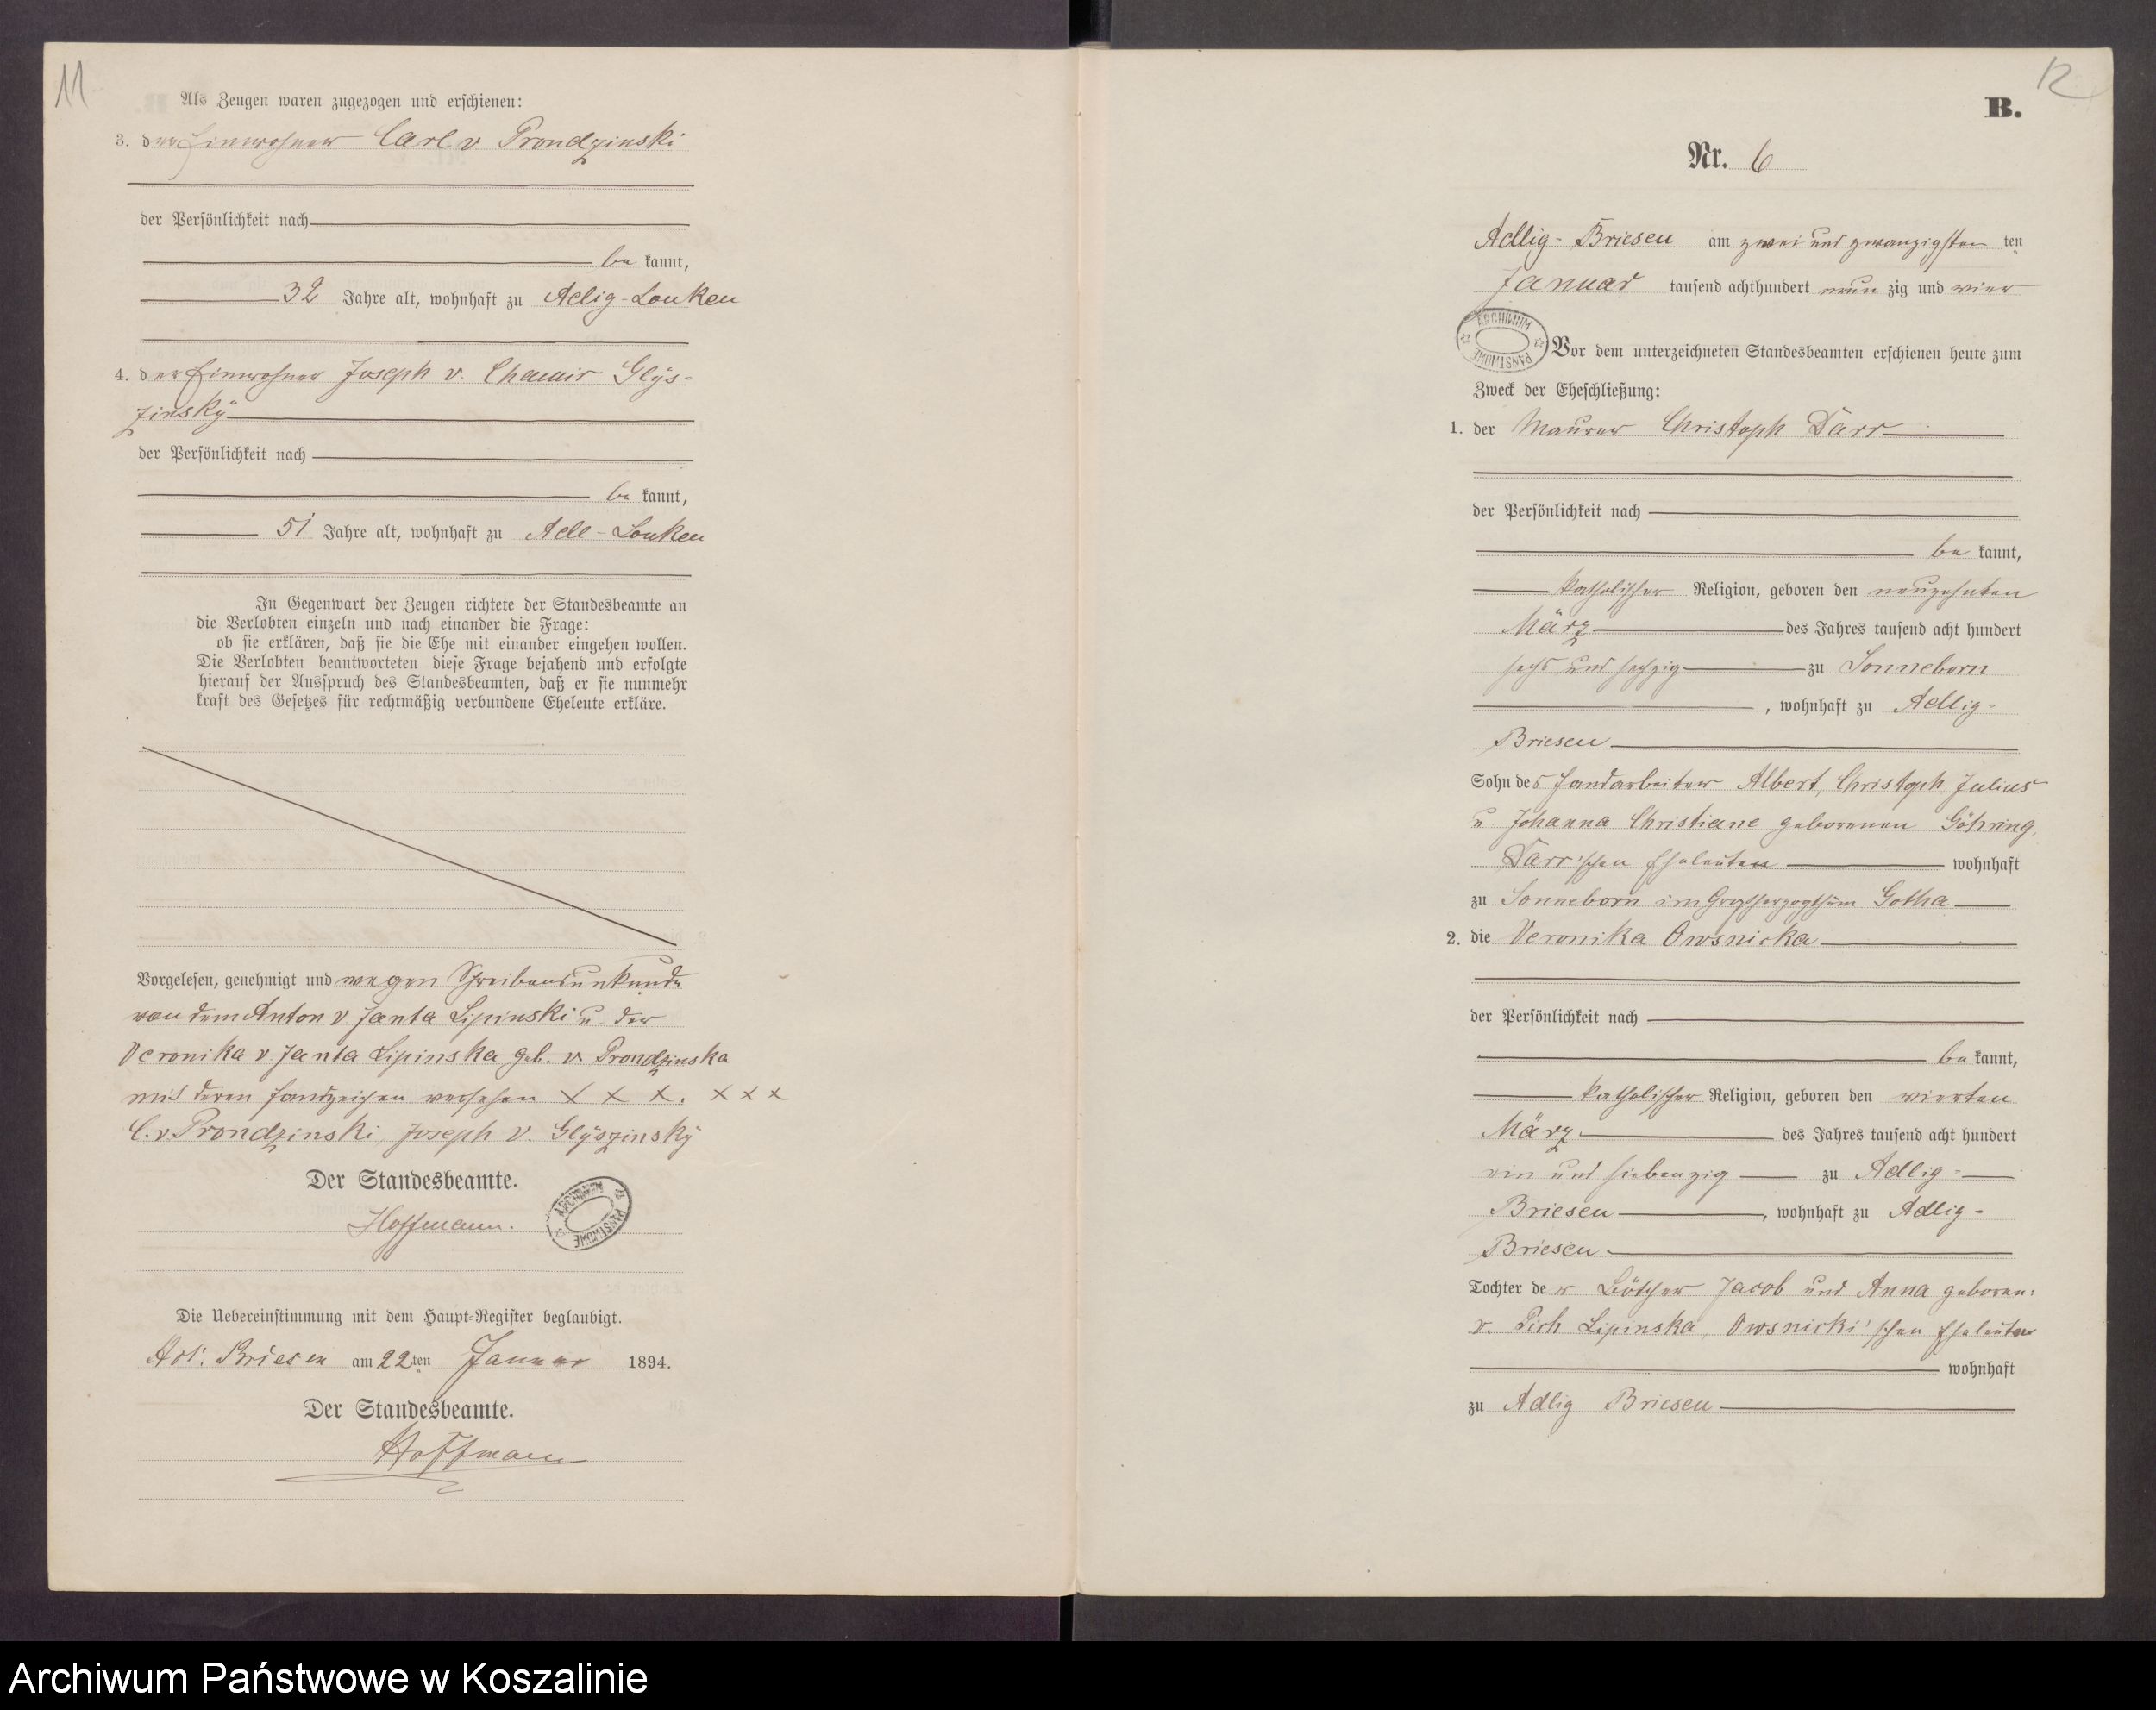 11
Als Zeugen waren zugezogen und erschienen:
3. der Einwohner Carl v Prondzinski
der Persönlichkeit nach
be kannt,
32 Jahre alt, wohnhaft zu Adlig-Lonken
4. der Einwohner Joseph v. Chamir Glÿs-
zinskÿ
der Persönlichkeit nach
be kannt,
51 Jahre alt, wohnhaft zu Adl-Lonken
In Gegenwart der Zeugen richtete der Standesbeamte an
die Verlobten einzeln und nach einander die Frage:
ob sie erklären, daß sie die Ehe mit einander eingehen wollen.
Die Verlobten beantworteten diese Frage bejahend und erfolgte
hierauf der Ausspruch des Standesbeamten, daß er sie nunmehr
kraft des Gesetzes für rechtmäßig verbundene Eheleute erkläre.
Vorgelesen, genehmigt und wegen Schreibensunkunde
von dem Anton v Janta Lipinski u. der
Veronika v. Janta Lipinska geb. v. Prondzinska
mit deren Handzeichen versehen X X X. X X X
C. v. Prondzinski, Joseph v. Glÿszinskÿ
Der Standesbeamte.
Hoffmann.
Die Uebereinstimmung mit dem Haupt-Register beglaubigt.
Adl. Briesen am 22ten Januar 1894.
Der Standesbeamte.
Hoffmann
12
B.
Nr. 6
Adlig-Briesen am zwei und zwanzigsten ten
Januar tausend achthundert neun zig und vier
ARCHIWUM PAŃSTWOWE
Vor dem unterzeichneten Standesbeamten erschienen heute zum
Zweck der Eheschließung:
1. der Maurer Christoph Darr
der Persönlichkeit nach
be kannt,
katholischer Religion, geboren den neunzehnten
März des Jahres tausend acht hundert
sechs und sechzig zu Sonneborn
, wohnhaft zu Adlig-
Briesen
Sohn des Handarbeiter Albert, Christoph Julius
u Johanna Christiane geborenen Göhring,
Darr'schen Eheleuten wohnhaft
zu Sonneborn im Großherzogthum Gotha
2. die Veronika Owsnicka
der Persönlichkeit nach
be kannt,
katholischer Religion, geboren den vierten
März des Jahres tausend acht hundert
ein und siebenzig zu Adlig-
Briesen, wohnhaft zu Adlig-
Briesen
Tochter der Bötcher Jacob und Anna geboren:
v. Pich Lipinska, Owsnicki'schen Eheleuten
wohnhaft
zu Adlig Briesen
Archiwum Państwowe w Koszalinie